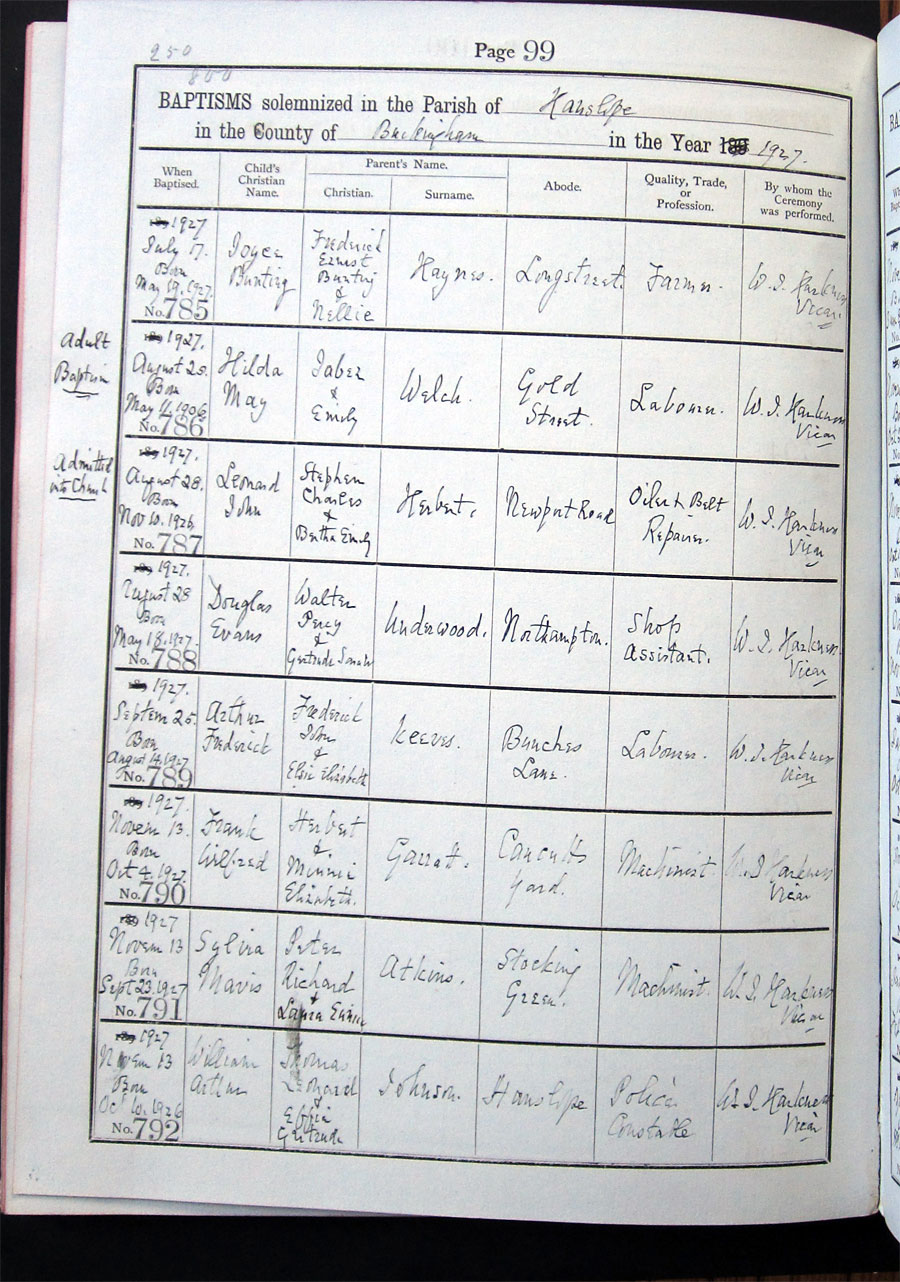 250
800
Page 99
BAPTISMS solemnized in the Parish of Hanslope
in the County of Buckingham in the Year 189 1927.
When Baptised. Child's Christian Name. Parent's Name. Christian. Surname. Abode. Quality, Trade, or Profession. By whom the Ceremony was performed.
1927
July 17.
Born
May 19. 1927.
No. 785
Joyce
Bunting
Frederick
Ernest
Bunting
&
Nellie
Haynes.
Longstreet.
Farmer.
W. J. Harkness
Vicar
Adult
Baptism
1927.
August 25.
Born
May 11. 1906.
No. 786
Hilda
May
Jabez
&
Emily
Welch.
Gold
Street.
Labourer.
W. J. Harkness
Vicar
Admitted
into Church
1927.
August 28.
Born
Nov 10. 1926.
No. 787
Leonard
John
Stephen
Charles
&
Bertha Emily
Herbert.
Newport Road
Oiler & Belt
Repairer.
W. J. Harkness
Vicar
1927.
August 28
Born
May 18. 1927.
No. 788
Douglas
Evans
Walter
Percy
&
Gertrude Sarah
Underwood.
Northampton.
Shop
Assistant.
W. J. Harkness.
Vicar
1927.
Septem 25.
Born
August 14. 1927
No. 789
Arthur
Frederick
Frederick
John
&
Elsie Elizabeth
Keeves.
Bunches
Lane.
Labourer.
W. J. Harkness
Vicar
1927.
Novem 13.
Born
Oct 4. 1927.
No. 790
Frank
Wilfred
Herbert
&
Minnie
Elizabeth.
Garratt.
Cancutts
Yard.
Machinist.
W. J Harkness
Vicar
1927
Novem 13
Born
Sept 23. 1927
No. 791
Sylvia
Mavis
Peter
Richard
&
Laura
Atkins.
Stocking
Green.
Machinist.
W. J. Harkness
Vicar
1927
Novem 13
Born
Oct 10. 1926
No. 792
William
Arthur
Thomas
Leonard
&
Effie
Gertrude
Johnson.
Hanslope
Police
Constable
W. J. Harkness
Vicar